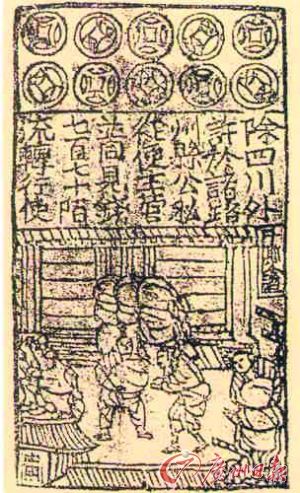 除四川外
許於諸路
州縣公私
從便主管
並同見錢
七百七十陌
流轉行使
廣州日报